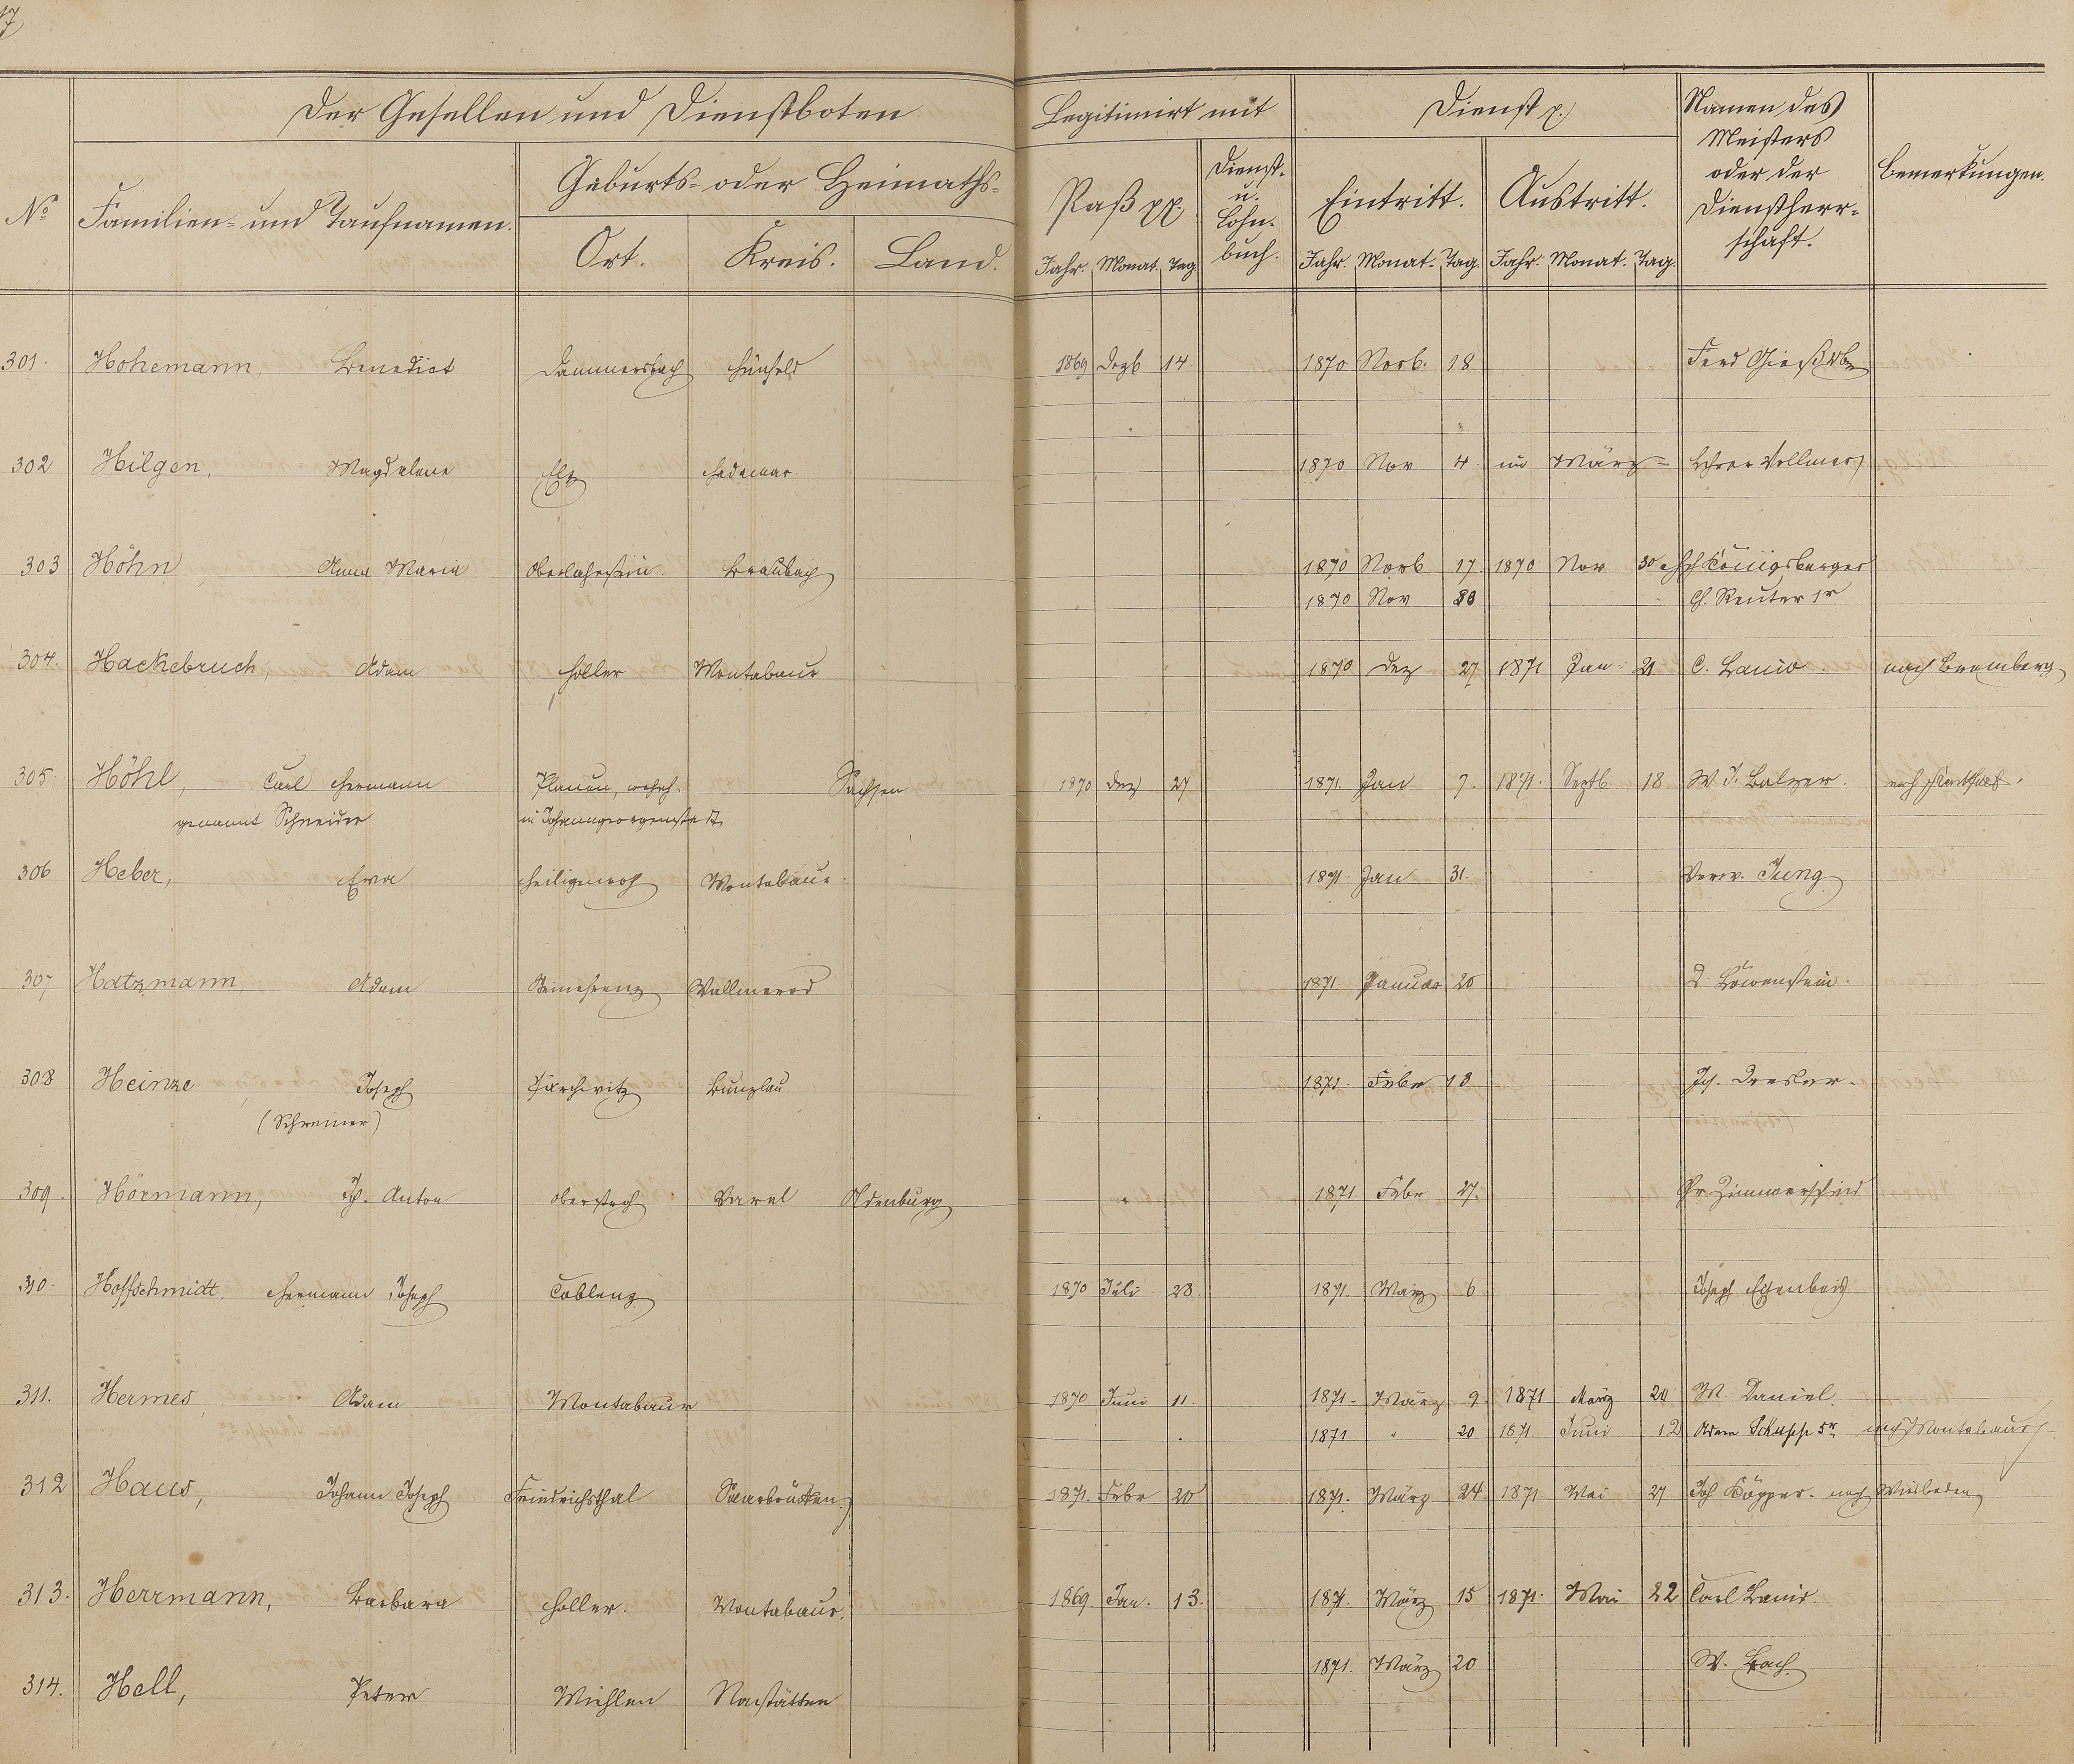 Der Gesellen und Dienstboten Legitimirt mit Dienst p. Namen des Meisters oder der Dienstherr- schaft. Bemerkungen.
No Familien- und Taufnamen. Geburts- oder Heimaths- Paß pp. Dienst- u. Lohn- buch. Eintritt. Austritt.
Ort. Kreis. Land. Jahr. Monat. Tag. Jahr. Monat. Tag. Jahr. Monat. Tag.
301. Hohemann, Benedict Dammersbach Hünfeld 1869 Dezb 14. 1870 Novb. 18 Ferd
302 Hilgen, Magdalene Elz Hadamar 1870 Nov 4 März Lehrer Vollmer
303 Höhn, Anna Maria Oberlahnstein. Braubach 1870 Novb 17. 1870 Nov 30 Königsberger
1870 Nov 30 Reuter 1r
304. Hackebruch, Adam Holler Montabaur 1870 Dez 27 1871 Jan. 21 C. Lanio. nach Bromberg
305. Höhl, Carl Hermann Plauen, wohnh. Sachsen 1870 Dez 27 1871. Jan 7. 1871. Septb. 18 W. J. Balzer. nach
genannt Schneider in Johanngeorgenstadt
306 Heber, Eva Heiligenroth Montabaur. 1871. Jan 31. Verw. Jung
307 Hatzmann, Adam Steinefrenz Wallmerod 1871 Januar 20 D. Löwenstein.
308 Heinze, Joseph Bunzlau 1871. Febr 13 Dresler.
(Schreiner)
309. Hörmann, Jh. Anton Varel Oldenburg 1871 Febr 27. Zimmerschied
310. Hoffschmidt, Hermann Joseph Coblenz 1870 Juli 28. 1871. März 6 Joseph Egenberg
311. Hermes, Adam Montabaur 1870 Juni 11. 1871. März 9. 1871 März 20 W. Daniel.
1871 " 20 1871 Juni 12 Adam Schupp 5r nach Montabaur
312 Haus, Johann Joseph Friedrichsthal Saarbrücken 1871. Febr 20 1871. März 24. 1871 Mai 27 Joh Köpper. nach Wiesbaden
313. Herrmann, Barbara Holler. Montabaur. 1869 Jan. 13. 1871. März 15 1871. Mai 22 Carl Lanio.
1871. März 20 W. Bach.
314. Hell, Peter Miehlen Nastätten